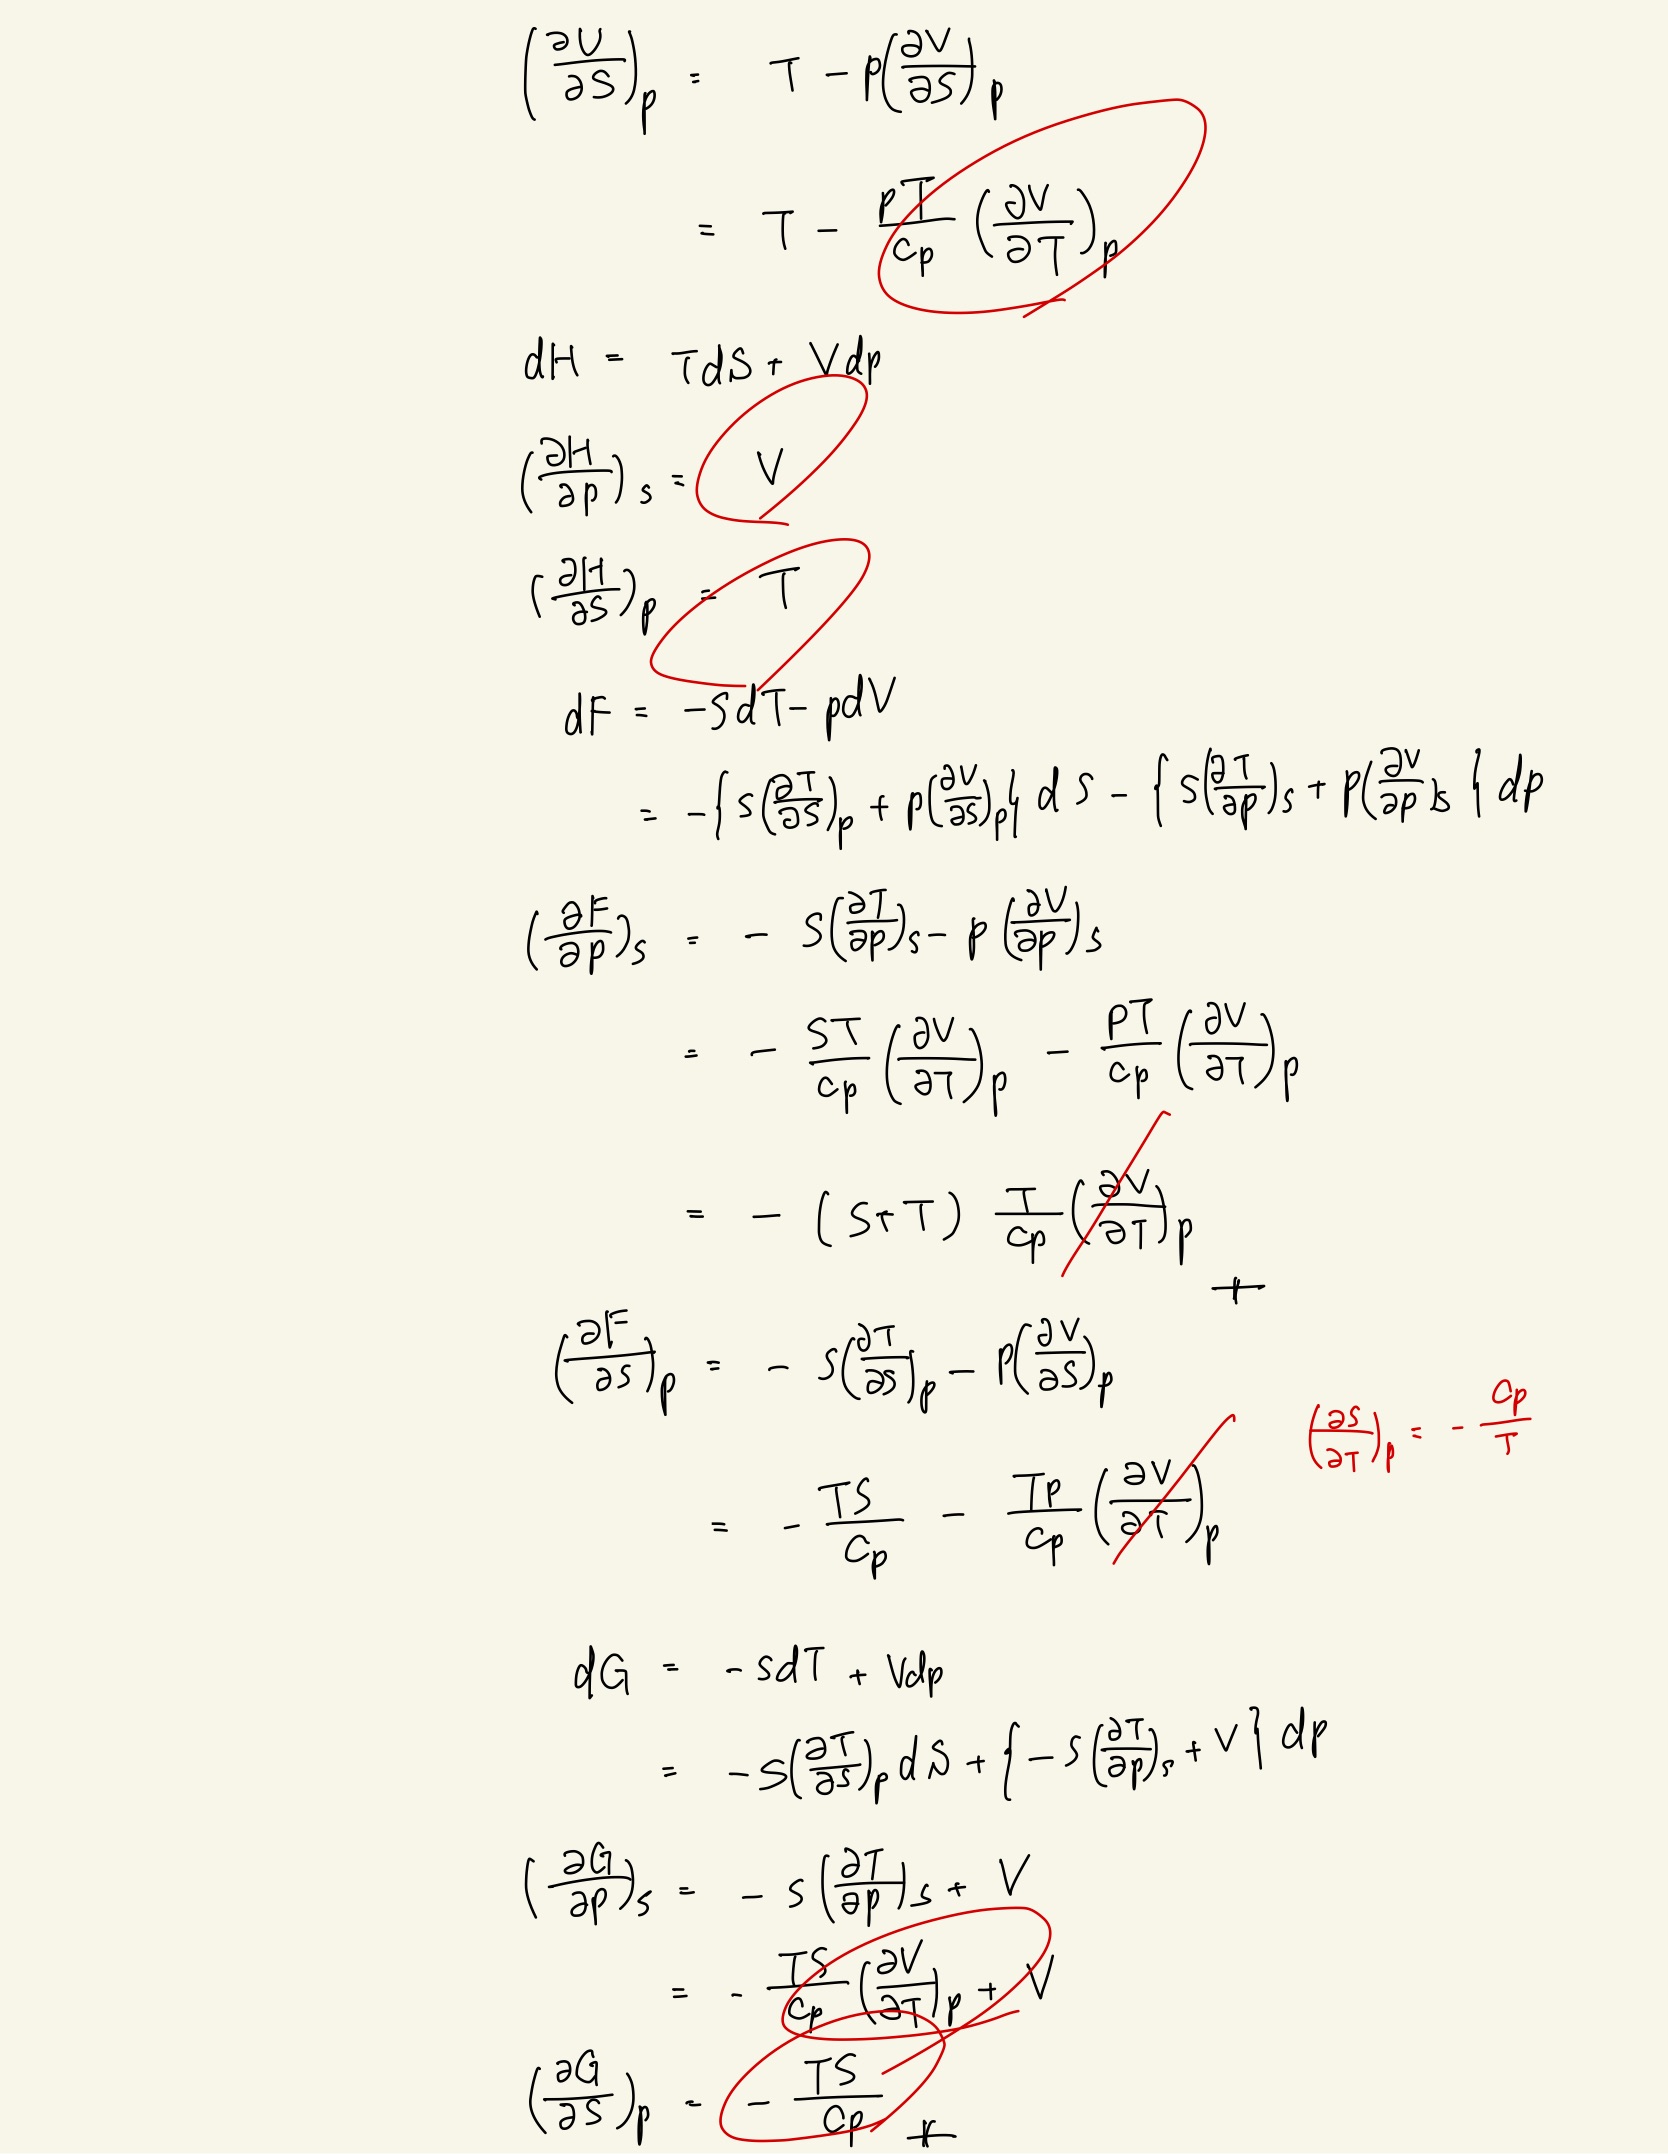 (∂U/∂S)_p = T - p(∂V/∂S)_p
= T - pT/c_p (∂V/∂T)_p
dH = TdS + Vdp
(∂H/∂p)_s = V
(∂H/∂S)_p = T
dF = -SdT - pdV
= -{S(∂T/∂S)_p + p(∂V/∂S)_p} dS - {S(∂T/∂p)_s + p(∂V/∂p)_s} dp
(∂F/∂p)_s = - S(∂T/∂p)_s - p(∂V/∂p)_s
= - ST/c_p (∂V/∂T)_p - pT/c_p (∂V/∂T)_p
= - (S+T) T/c_p (∂V/∂T)_p
(∂F/∂S)_p = - S(∂T/∂S)_p - p(∂V/∂S)_p
(∂S/∂T)_p = - c_p/T
= - TS/c_p - Tp/c_p (∂V/∂T)_p
dG = - SdT + Vdp
= - S(∂T/∂S)_p dS + {- S(∂T/∂p)_s + V} dp
(∂G/∂p)_s = - S(∂T/∂p)_s + V
= - TS/c_p (∂V/∂T)_p + V
(∂G/∂S)_p = - TS/c_p